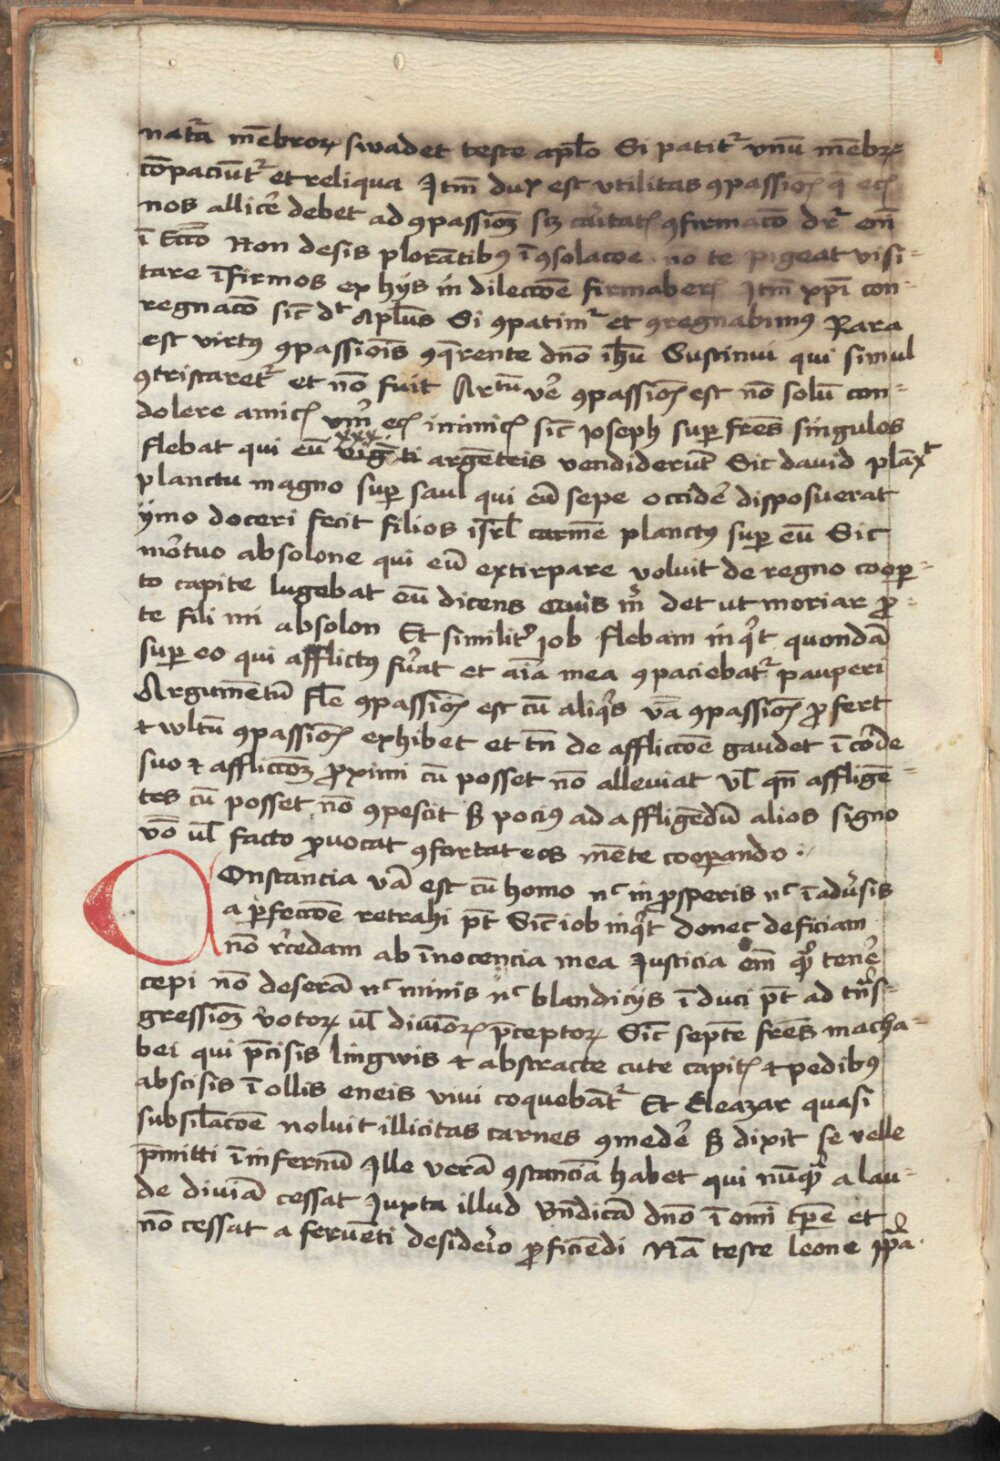 nat᷑a mēbroꝝ swadet teste apl̄o Si patit᷑ vnū mēbꝝ
cōpaciūt᷑ et reliqua Jtm̄ dux est vtilitas ꝯpassiōꝭ q̄ ecꝭ
nos allic̄e debet ad ꝯpassiōꝫ scꝫ caritatꝭ ꝯfirmacō dr᷑ em̄
ī Eccō Non desis plorātibꝰ ī ꝯsolacōe no te pigeat visi-
tare īfirmos ex hijs in dileccōe firmaberꝭ Jtm̄ xp̄i con-
regnacō sic̄ dt᷑ Apl̄us Si ꝯpatim᷑ et ꝯregnabimꝰ Rara
est virtꝰ ꝯpassiōis ꝯq̄rente dn̄o ih̄u Sustinui qui simul
ꝯtristaret᷑ et nō fuit Artū v̄e ꝯpassiōꝭ est nō solū con-
dolere amicꝭ vm̄ ecꝭ inimicꝭ sic̄ Joseph suꝑ fr̄es singulos
flebat qui eū vigēti xxx argēteis vendiderūt Sic david plāxt᷑
planctu magno suꝑ saul qui eū sepe occid̄e disposuerat
ymo doceri fecit filios isr̄l carmē planctꝰ suꝑ eū Sic
mōrtuo absolone qui eū extirpare voluit de regno cooꝑ-
to capite lugebat eū dicens Quis m̄ det ut moriar ꝓ-
te fili mi absolon Et similit᷑ iob flebam inq̄t quondā
suꝑ eo qui afflictꝰ fūat et aīa mea ꝯpaciebat᷑ pauperi
Argumētū fl̄e ꝯpassiōꝭ est cū aliq̄s v̄a ꝯpassiōꝭ ꝓfert
⁊ wltū ꝯpassiōꝭ exhibet et tn̄ de affliccōe gaudet ī corde
suo ⁊ affliccōꝫ ꝓximi cū posset nō alleviat vl̄ qn̄ affligē-
tes cū posset nō ꝯpescit ẞ pociꝰ ad affligēdū alios signo
v̄o ul̄ facto ꝓvocat ꝯfortat eos mēte cooꝑando :
Constancia v̄a est cū homo nc̄ in ꝓsperis nc̄ ī adv̄sis
a ꝑfeccōe retrahi pt̄ Sic̄ iob inq̄t donec deficiam
nō r̄cedam ab īnocencia mea Justicia em̄ q̄ tenē
cepi nō deserā nc̄ minis nc̄ blandicijs ī duci pt̄ ad tn̄s-
gressiōꝫ votoꝝ ul̄ diviōꝝ p̄ceptoꝝ Sic̄ septē fr̄es macha-
bei qui p̄cisis lingwis ⁊ abstracte cute capitꝭ ⁊ pedibꝰ
abscisis ī ollis eneis vivi coquebāt᷑ Et Eleazar quasi
subsil̄acōe noluit illicitas carnes ꝯmed̄e ẞ dixit se velle
p̄mitti ī infernū Jlle verā ꝯstanciā habet qui nūq̄ a lau-
de diviā cessat Juxta illud Bn̄dicā dn̄o ī omī tꝑe et
nō cessat a fervēti desid̄io ꝓficiēdi Nā teste leone ppa